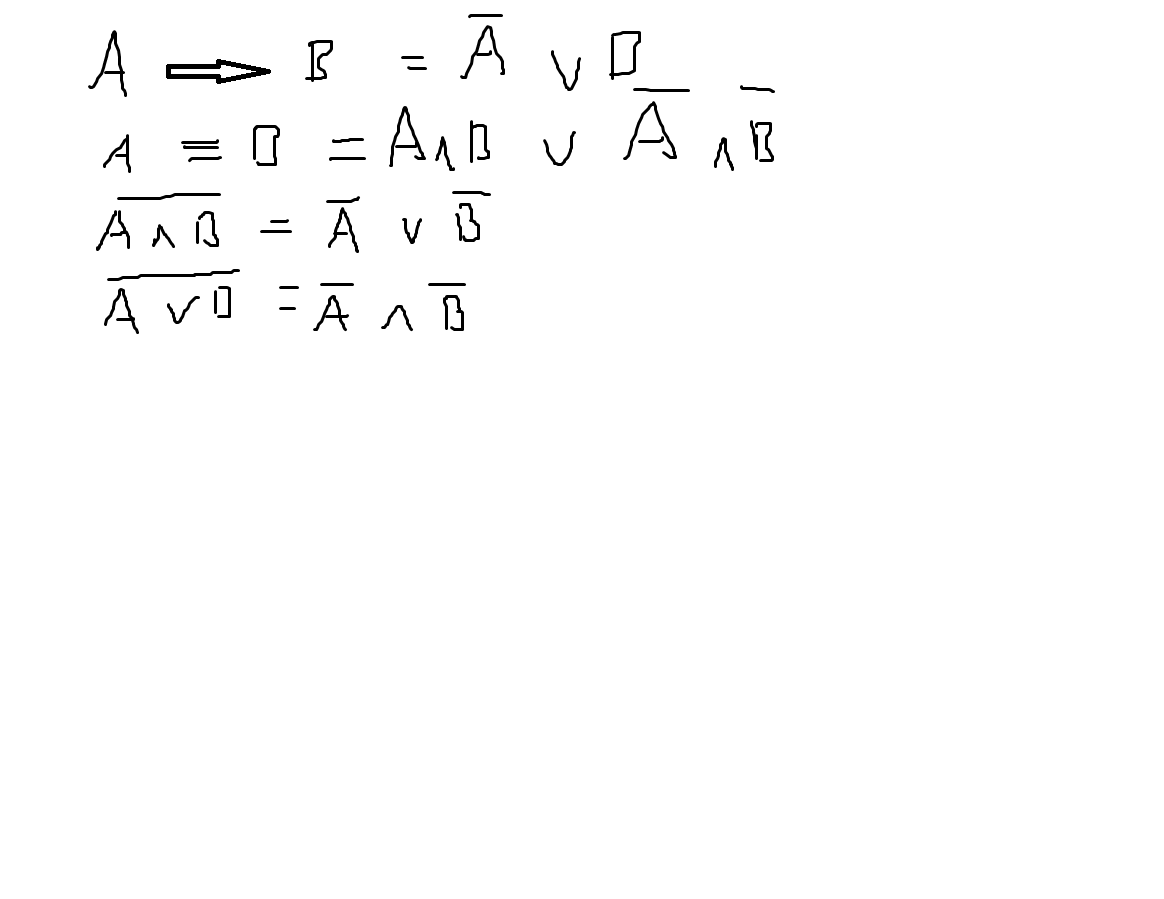 A ⇒ B = A̅ ∨ B
A ≡ B = A ∧ B ∨ A̅ ∧ B̅
A̅ ̅∧̅ ̅B̅ = A̅ ∨ B̅
A̅ ̅∨̅ ̅B̅ = A̅ ∧ B̅